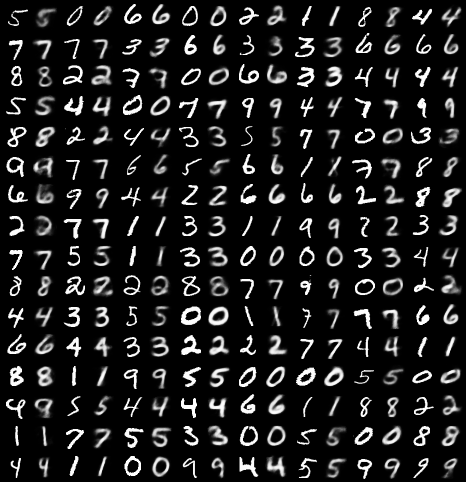 5 5 0 0 6 6 0 0 2 2 1 1 8 8 4 4
7 7 7 7 3 3 6 6 3 3 3 3 6 6 6 6
8 8 2 2 7 7 0 0 6 6 3 3 4 4 4 4
5 5 4 4 0 0 7 7 9 9 4 4 7 7 9 9
8 8 2 2 4 4 3 3 5 5 7 7 0 0 3 3
9 9 7 7 6 6 5 5 6 6 1 1 7 7 8 8
6 6 9 9 4 4 2 2 6 6 6 6 2 2 8 8
2 2 7 7 1 1 3 3 1 1 9 9 2 2 3 3
7 7 5 5 1 1 3 3 0 0 0 0 3 3 4 4
8 8 2 2 2 2 8 8 7 7 9 9 0 0 2 2
4 4 3 3 5 5 0 0 1 1 7 7 7 7 6 6
6 6 4 4 3 3 2 2 2 2 7 7 4 4 1 1
8 8 1 1 9 9 5 5 0 0 0 0 5 5 0 0
9 9 5 5 4 4 4 4 6 6 1 1 8 8 2 2
1 1 7 7 5 5 3 3 0 0 5 5 0 0 8 8
4 4 1 1 0 0 9 9 4 4 5 5 9 9 9 9